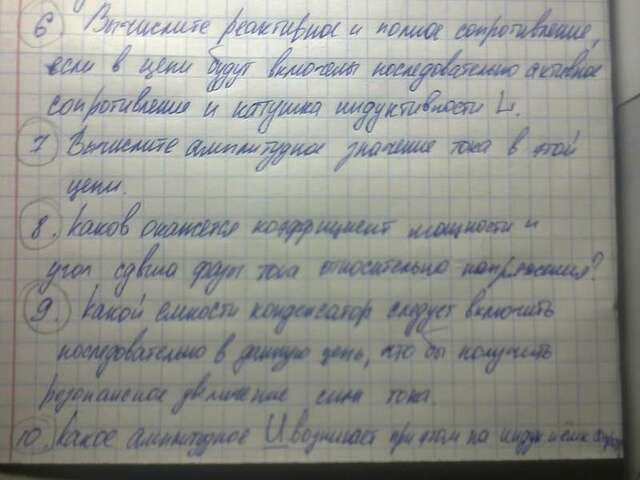 6 Вычислите реактивное и полное сопротивление,
если в цепи будут включены последовательно активное
сопротивление и катушка индуктивности L.
7 Вычислите амплитудное значение тока в этой
цепи.
8. Каков окажется коэффициент мощности и
угол сдвига фазы тока относительно напряжения?
9. Какой емкости конденсатор следует включить
последовательно в данную цепь, что бы получить
резонансное увеличение силы тока.
10. Какое амплитудное U возникает при этом на индук и ёмк